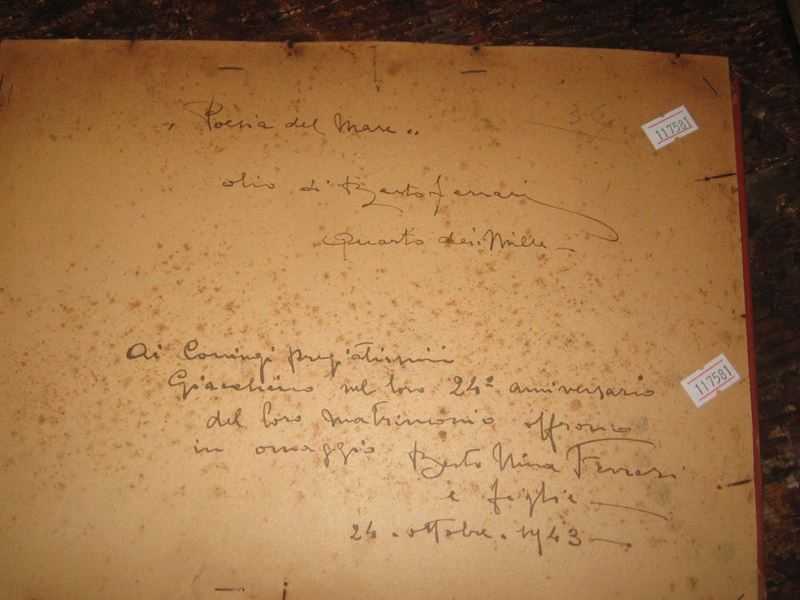 „ Poesia del Mare „
117581
olio di Berto Ferrari
Quarto dei Mille
Ai Coniugi pregiatissimi
117581
nel loro 24º anniversario
del loro matrimonio offrono
in omaggio Berto Nina Ferrari
e figlie
24 . ottobre . 1943